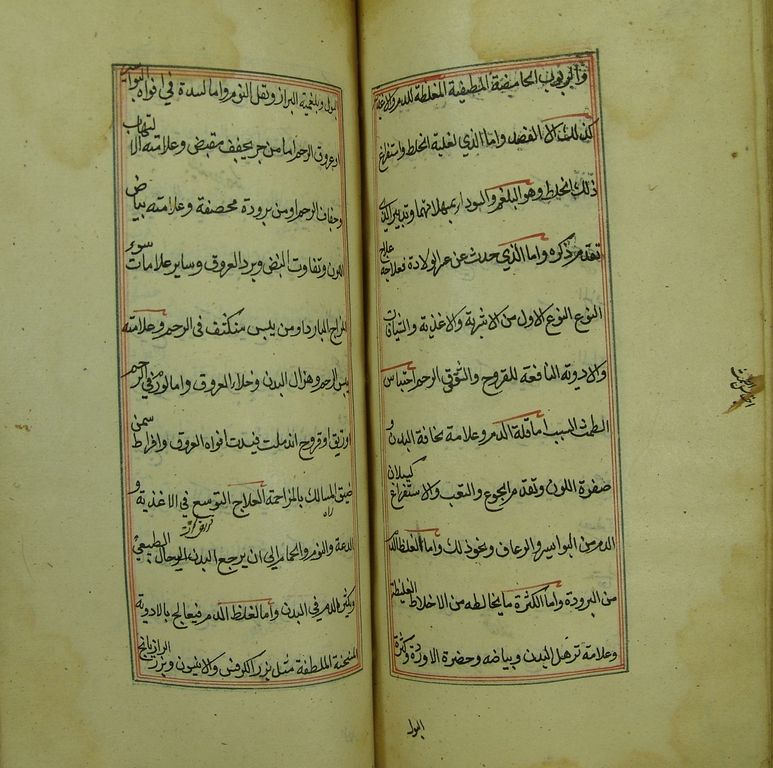 والربوب الحامضة المطفية المغلظة للدم والادوية
كذلك الا الفصد واما الذي لغلبة الخلط واستفراغ
ذلك الخلط وهو البلغم والسوداء بمسهلاتهما وتدبير الذي
تقدم ذكره واما الذي حدث عن عسر الولادة فعلاجه علاج
النوع النوع الاول من الاشربة والاغذية والشيافات
والادوية النافعة للقروح والشقوق الرحم احتباس
الطمث السبب اما قلة الدم وعلامة نحافة البدن و
صفرة اللون وتقدم الجوع والتعب والاستفراغ كسيلان
الدم من البواسير والرعاف ونحو ذلك واما لغلظ الدم
من البرودة واما لكثرة ما يخالطه من الاخلاط الغليظة
وعلامة ترهل البدن وبياضه وخضرة الاوردة وكثرة
البول
البول وبلغمية البراز وثقل النوم واما لسدة في افواه
او عروق الرحم اما من حر يجفف مقبض وعلامته الالتهاب
وجفاف الرحم او من برودة محصفة وعلامته بياض
اللون وتفاوت النبض وبرد العروق وساير علامات سوء
المزاج البارد او من يبس مكثف في الرحم وعلامته
يبس الرحم وهزال البدن وخلاء العروق واما لورم في الرحم
او رتق او قروح اندملت فسدت افواه العروق وافراط سمن
ضيق المسالك بالمزاحمة العلاج التوسع في الاغذية و
الدعة والنوم والحمام الى ان يرجع البدن الى حال الطبيعي
ويكثر الدم في البدن واما لغلظ الدم فيعالج بالادوية
المسخنة الملطفة مثل بزر الكرفس والانيسون وبزر الرازيانج